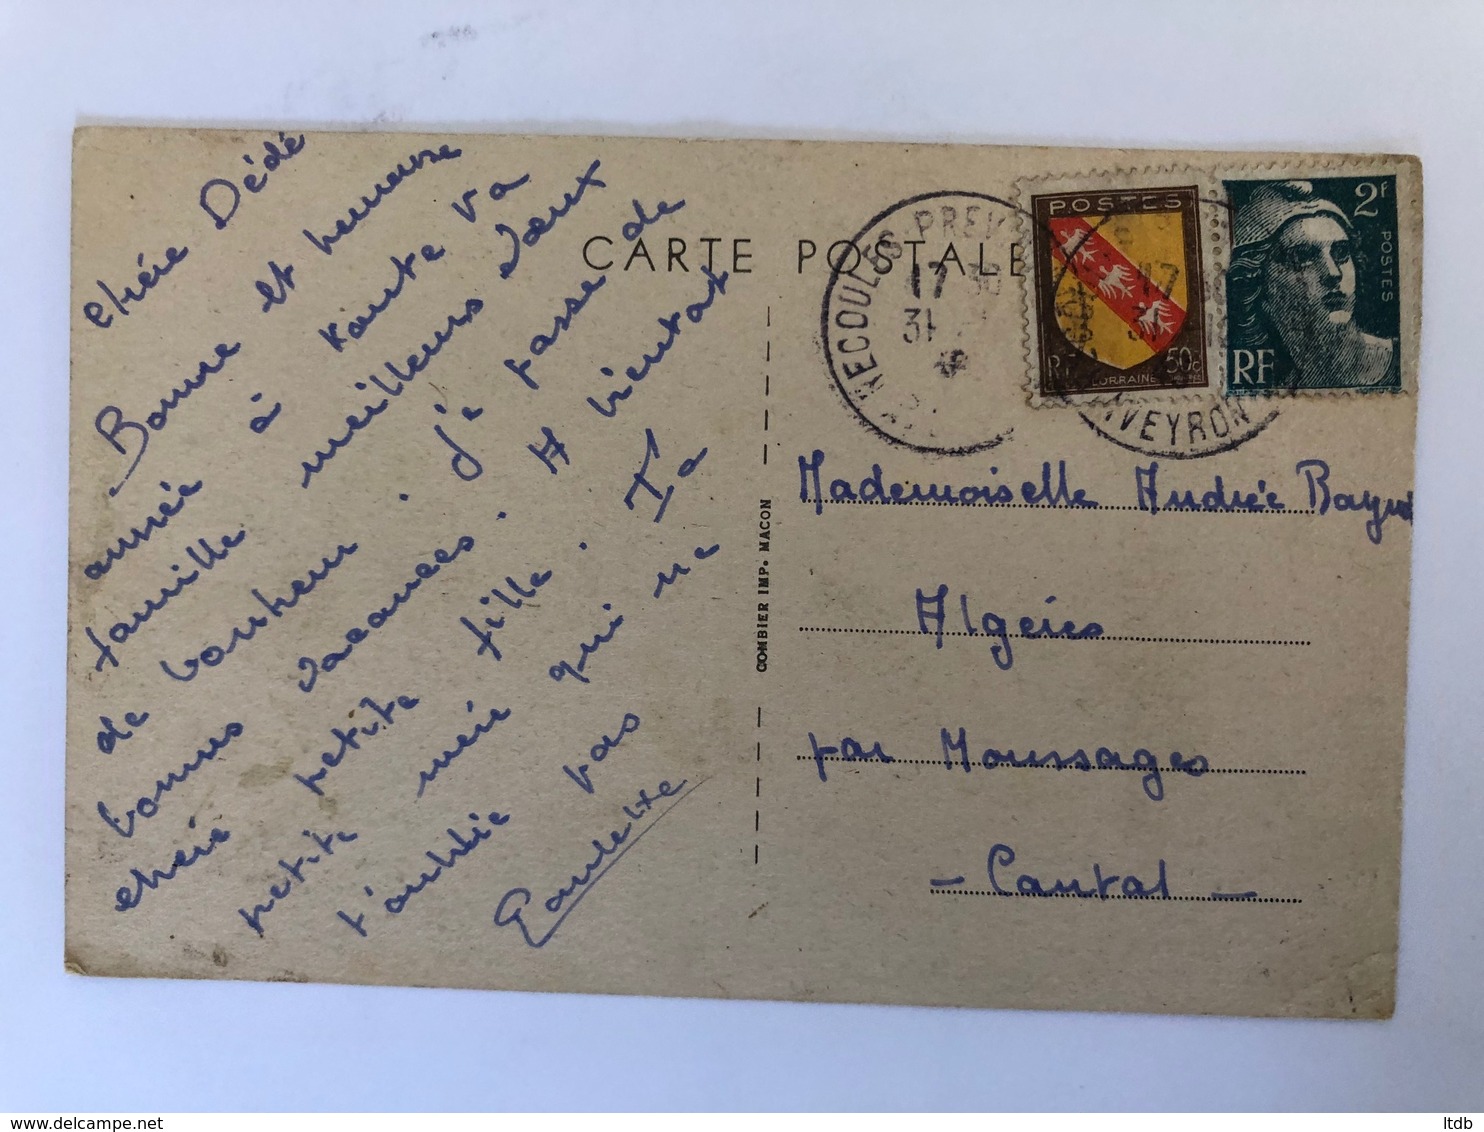 Chérie Dédé
Bonne et heureuse
année à toute ta
famille meilleurs vœux
de bonheur. Je passe de
bonnes vacances. A bientôt
chérie petite fille. Ta
petite mère qui ne
t'oublie pas
Paulette
CARTE POSTALE
COMBIER IMP. MACON
17 30
31
POSTES
RF
50c
LORRAINE
2F
POSTES
RF
AVEYRON
Mademoiselle Andrée
Algères
par Moussages
- Cantal -
delcampe.net
ltdb